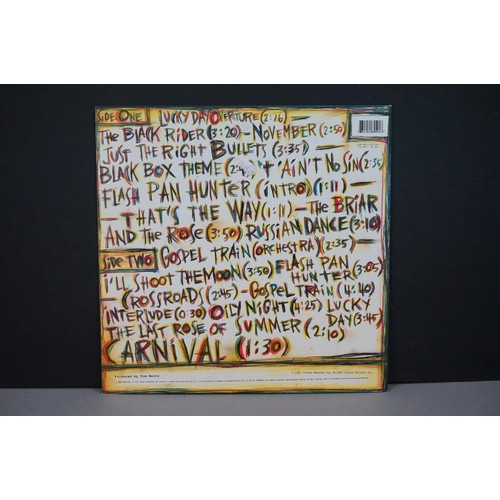 SIDE ONE LUCKY DAY OVERTURE (2:16) –
THE BLACK RIDER (3:20) – NOVEMBER (2:50)
JUST THE RIGHT BULLETS (3:35)
BLACK BOX THEME 'T 'AIN'T NO SIN (2:35)
FLASH PAN HUNTER (INTRO) (1:11) –
– THAT'S THE WAY (1:11) – THE BRIAR
AND THE ROSE (3:50) RUSSIAN DANCE (3:10)
SIDE TWO GOSPEL TRAIN (ORCHESTRA) (2:35) –
I'LL SHOOT THE MOON (3:50) FLASH PAN
HUNTER (3:05)
– CROSSROADS (2:45) – GOSPEL TRAIN (4:40)
INTERLUDE (0:30) OILY NIGHT (4:25) LUCKY
DAY (3:45)
THE LAST ROSE OF SUMMER (2:10)
CARNIVAL (1:30)
Produced by Tom Waits